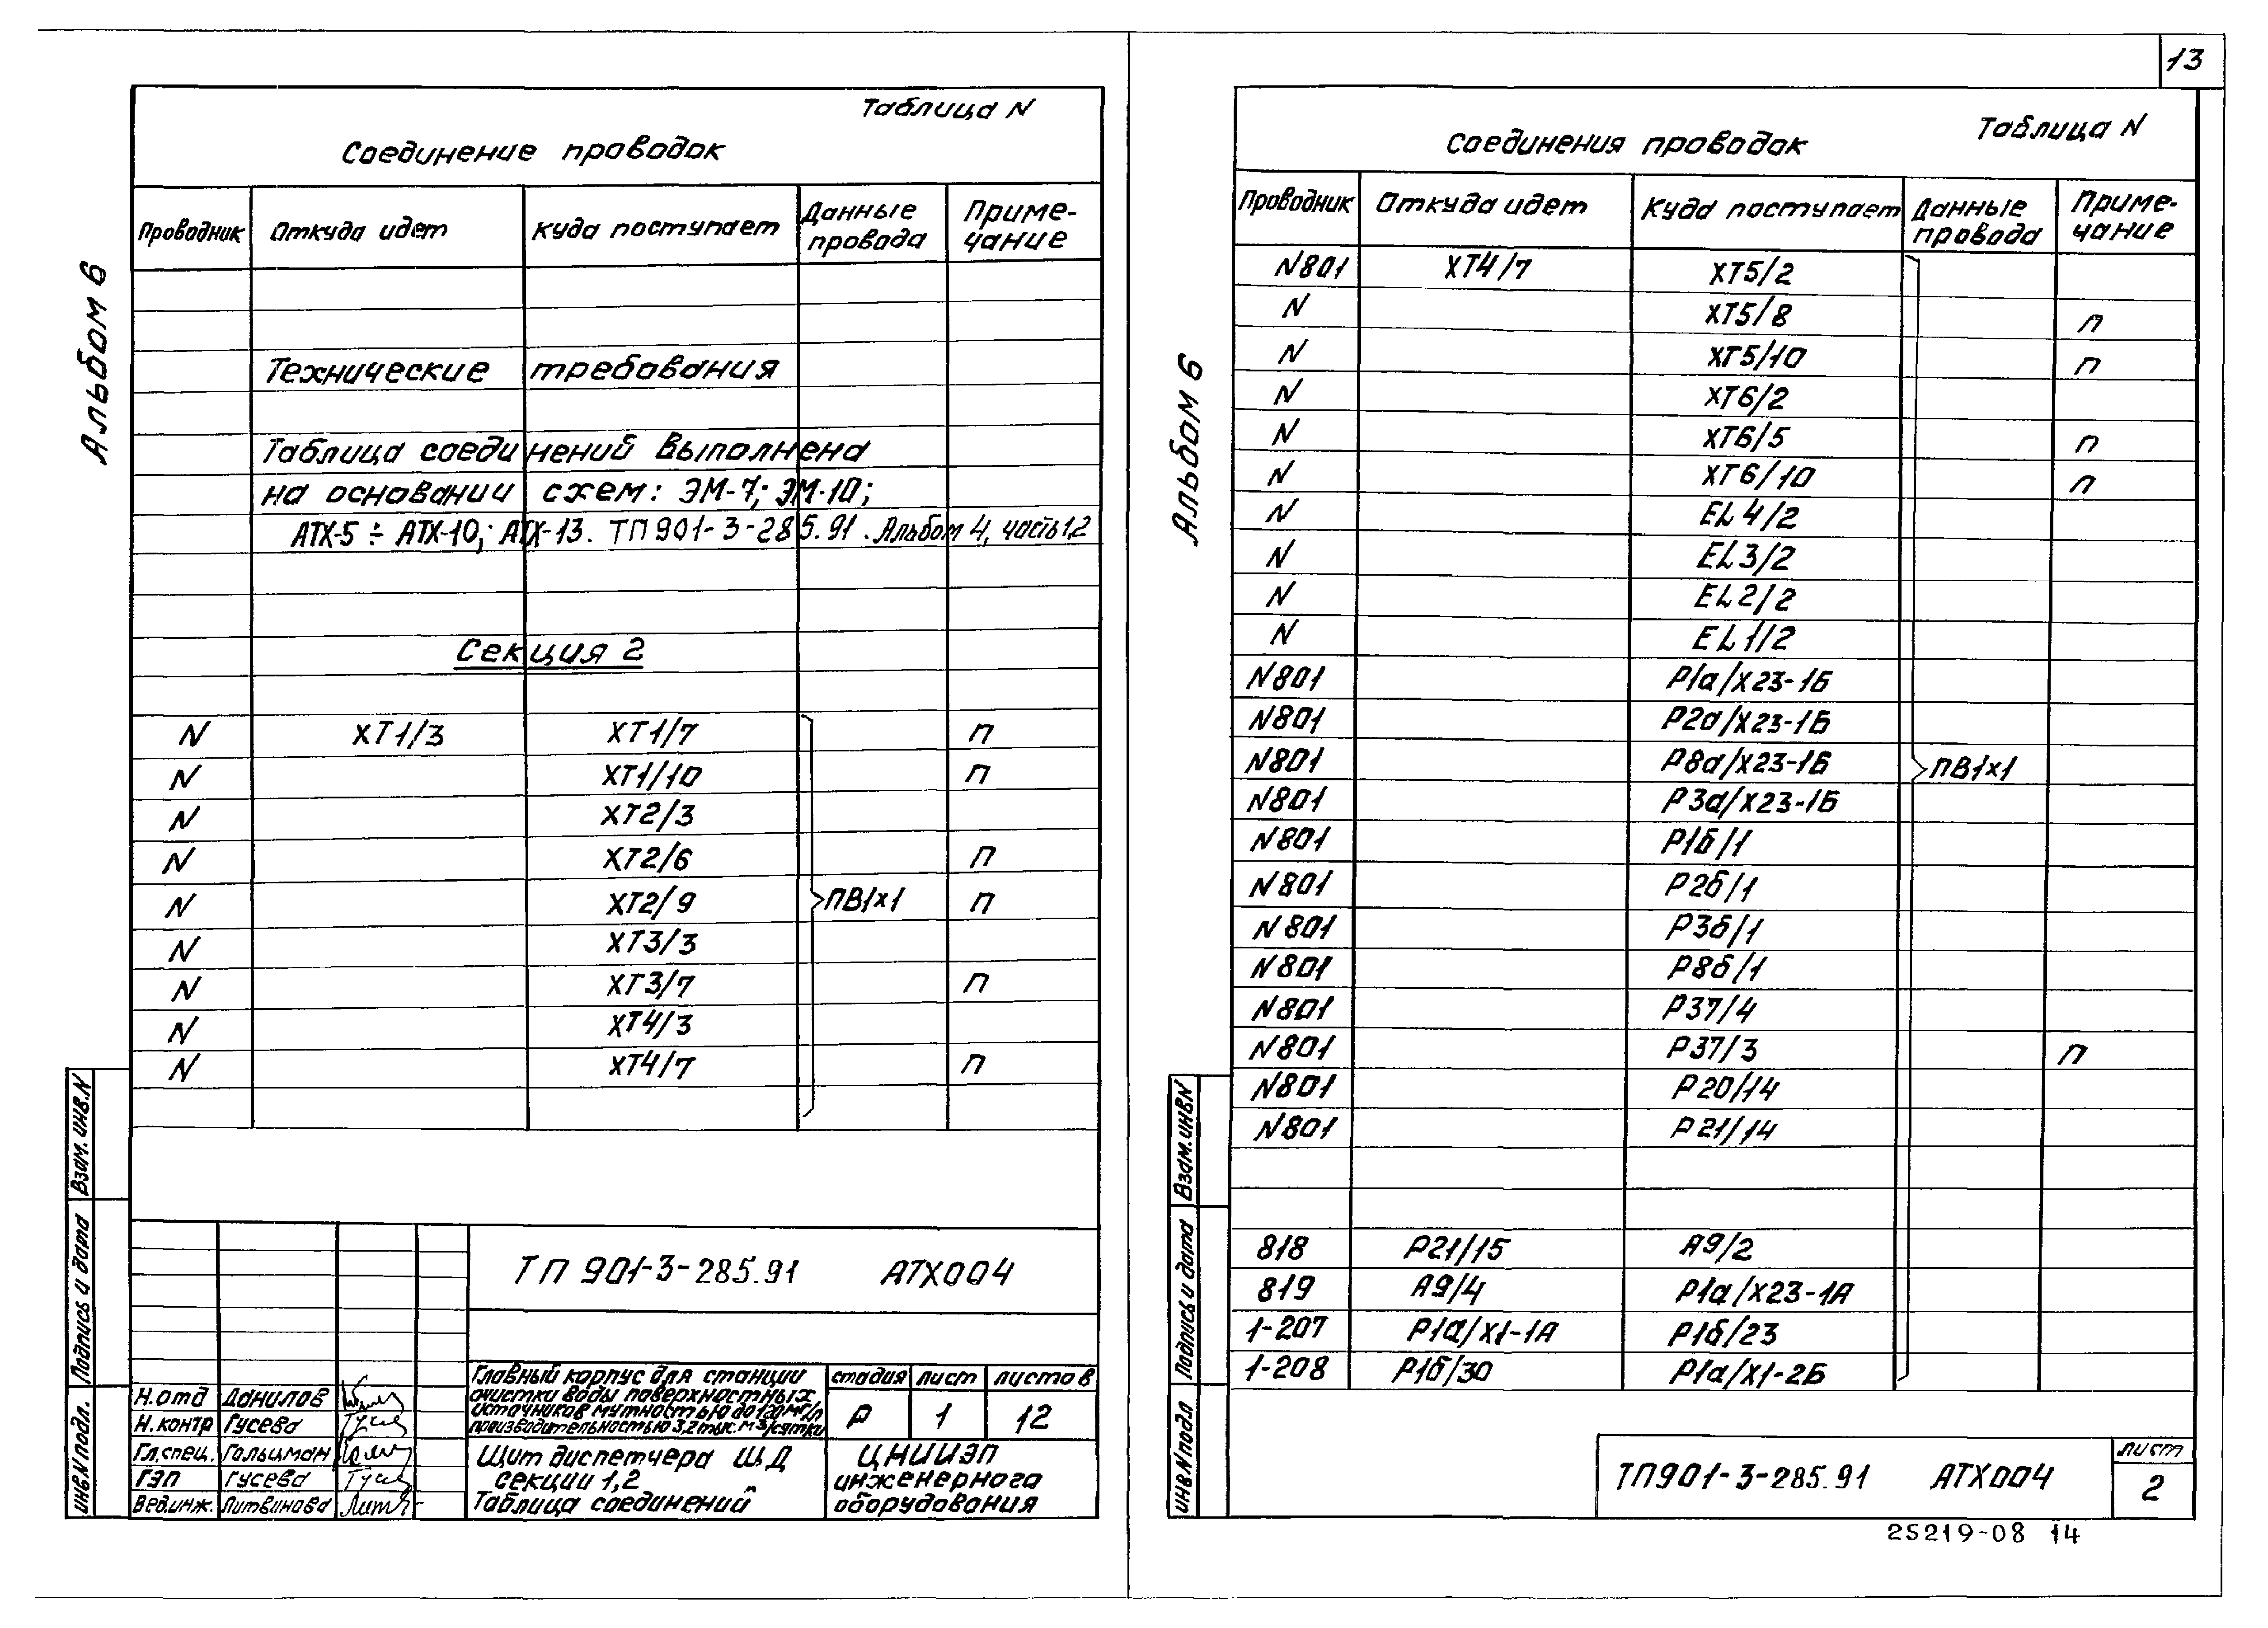 13
Альбом 6
Таблица N
Соединение проводок
Проводник Откуда идет Куда поступает Данные провода Примечание
Технические требования
Таблица соединений выполнена
на основании схем: ЭМ-7; ЭМ-10;
АТХ-5 ÷ АТХ-10; АТХ-13. ТП 901-3-285.91. Альбом 4, часть 1,2
Секция 2
N XT1/3 XT1/7 п
N XT1/10 п
N XT2/3
N XT2/6 п
N XT2/9 ПВ1х1 п
N XT3/3
N XT3/7 п
N XT4/3
N XT4/7 п
Взам. инв. N
Подпись и дата
инв N подл.
ТП 901-3-285.91 АТХ004
Главный корпус для станции
очистки воды поверхностных
источников мутностью до 120 мг/л
производительностью 3,2 тыс. м3/сутки
стадия лист листов
Р 1 12
Н.отд Данилов
Н.контр Гусева
Гл.спец. Гольцман
ГЭП Гусева
Вед.инж. Литвинова
Щит диспетчера ЩД
секции 1,2
Таблица соединений
ЦНИИЭП
инженерного
оборудования
Альбом 6
Таблица N
Соединения проводок
Проводник Откуда идет Куда поступает Данные провода Примечание
N801 XT4/7 XT5/2
N XT5/8 п
N XT5/10 п
N XT6/2
N XT6/5 п
N XT6/10 п
N EL4/2
N EL3/2
N EL2/2
N EL1/2
N801 Р1а/Х23-1Б
N801 Р2а/Х23-1Б
N801 Р8а/Х23-1Б ПВ1х1
N801 Р3а/Х23-1Б
N801 Р1б/1
N801 Р2б/1
N801 Р3б/1
N801 Р8б/1
N801 Р37/4
N801 Р37/3 п
N801 Р20/14
N801 Р21/14
818 Р21/15 А9/2
819 А9/4 Р1а/Х23-1А
1-207 Р1а/Х1-1А Р1б/23
1-208 Р1б/30 Р1а/Х1-2Б
Взам. инв N
Подпись и дата
инв N подл
ТП901-3-285.91 АТХ004
лист
2
25219-08 14